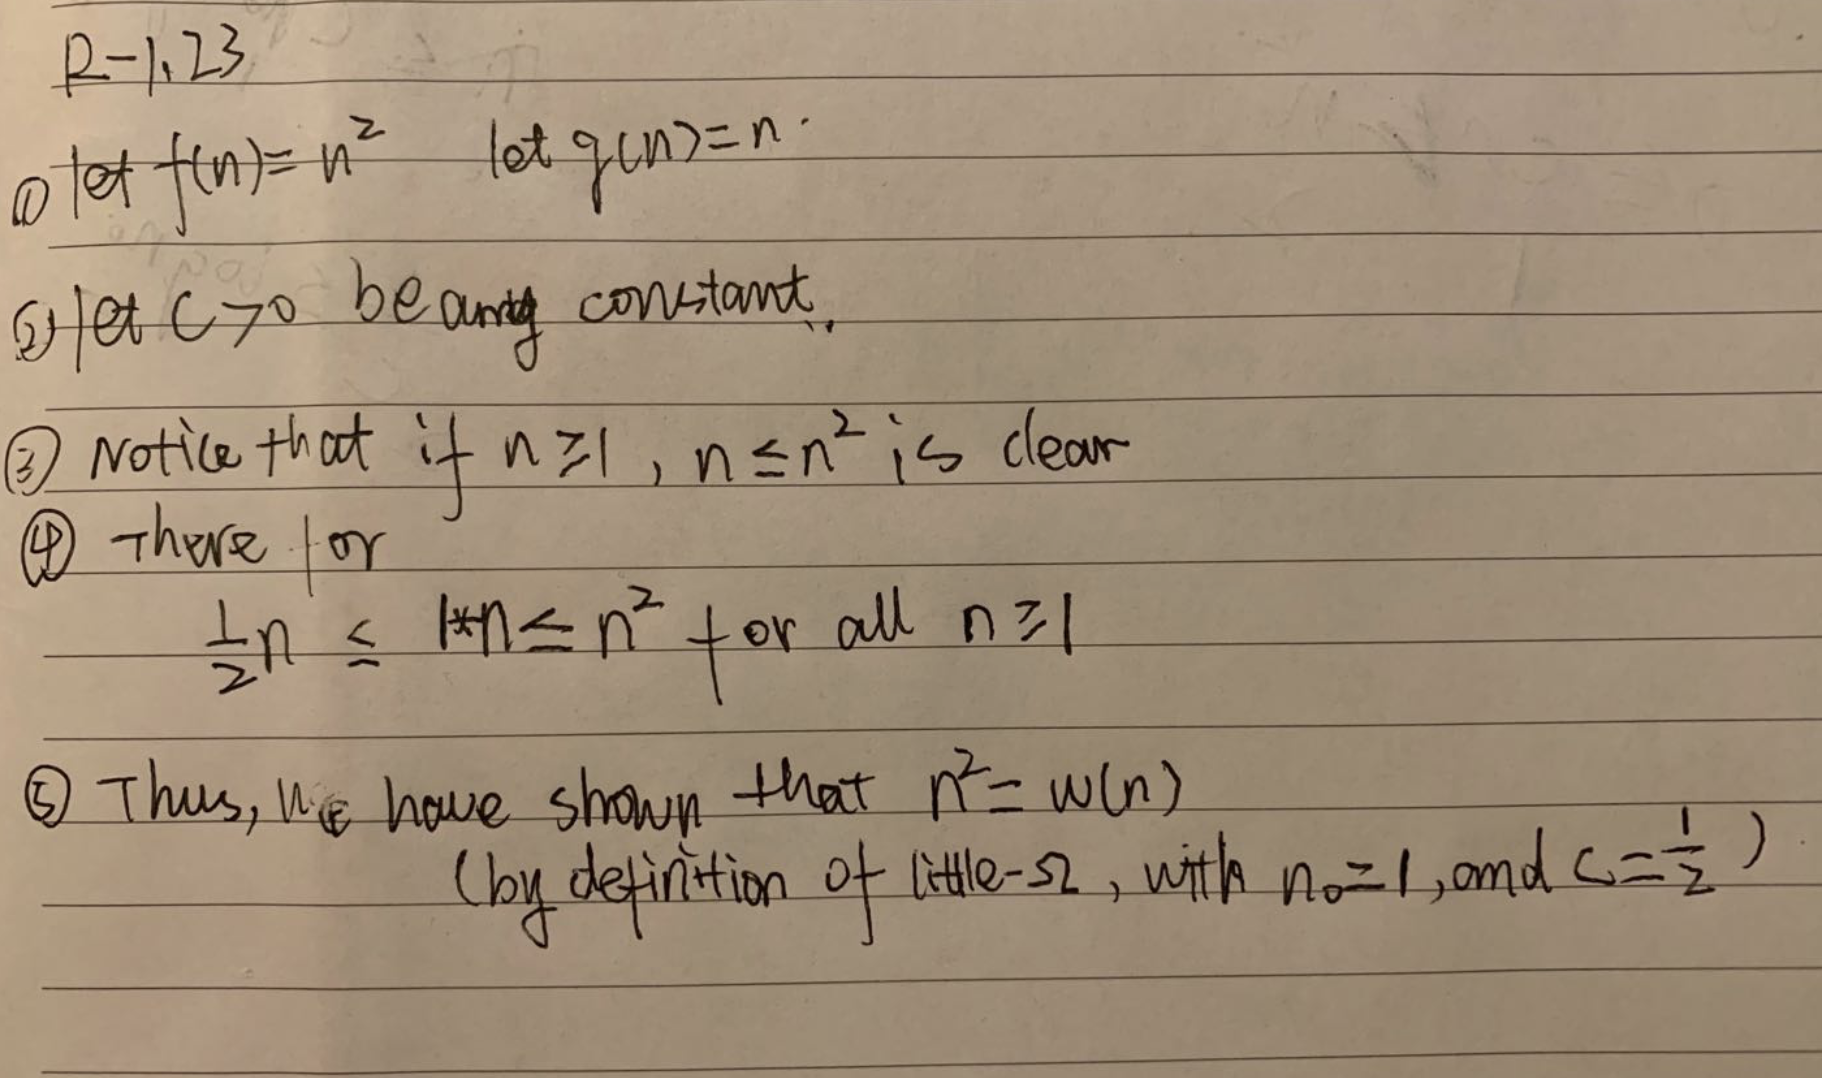 R-1.23
① let f(n)=n² let g(n)=n.
② let C>0 be any constant.
③ Notice that if n≥1, n≤n² is clear
④ There for
½n ≤ 1*n ≤ n² for all n≥1
⑤ Thus, we have shown that n²=w(n)
(by definition of little-Ω, with n₀=1, and c=½)